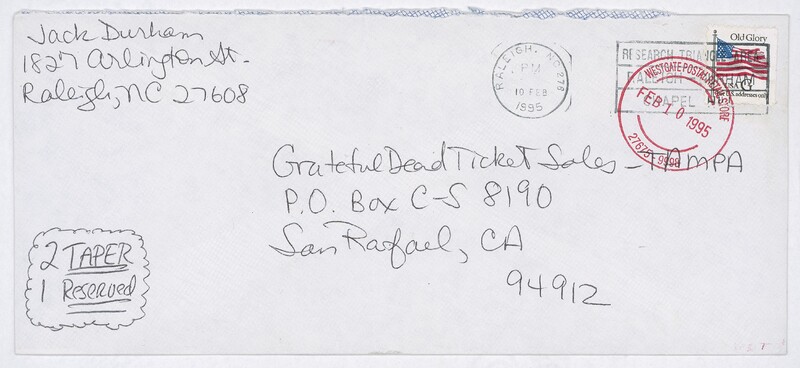 Jack Durham
1827 Arlington St.
Raleigh, NC 27608
RALEIGH, NC 276
PM
10 FEB
1995
RESEARCH TRIANGLE AREA
RALEIGH DURHAM
CHAPEL
Old Glory
G
U.S. addresses only
WESTGATE POSTAL STORE
FEB 10 1995
27675-9998
Grateful Dead Ticket Sales - TAMPA
P.O. Box C-S 8190
San Rafael, CA
94912
2 TAPER
1 Reserved